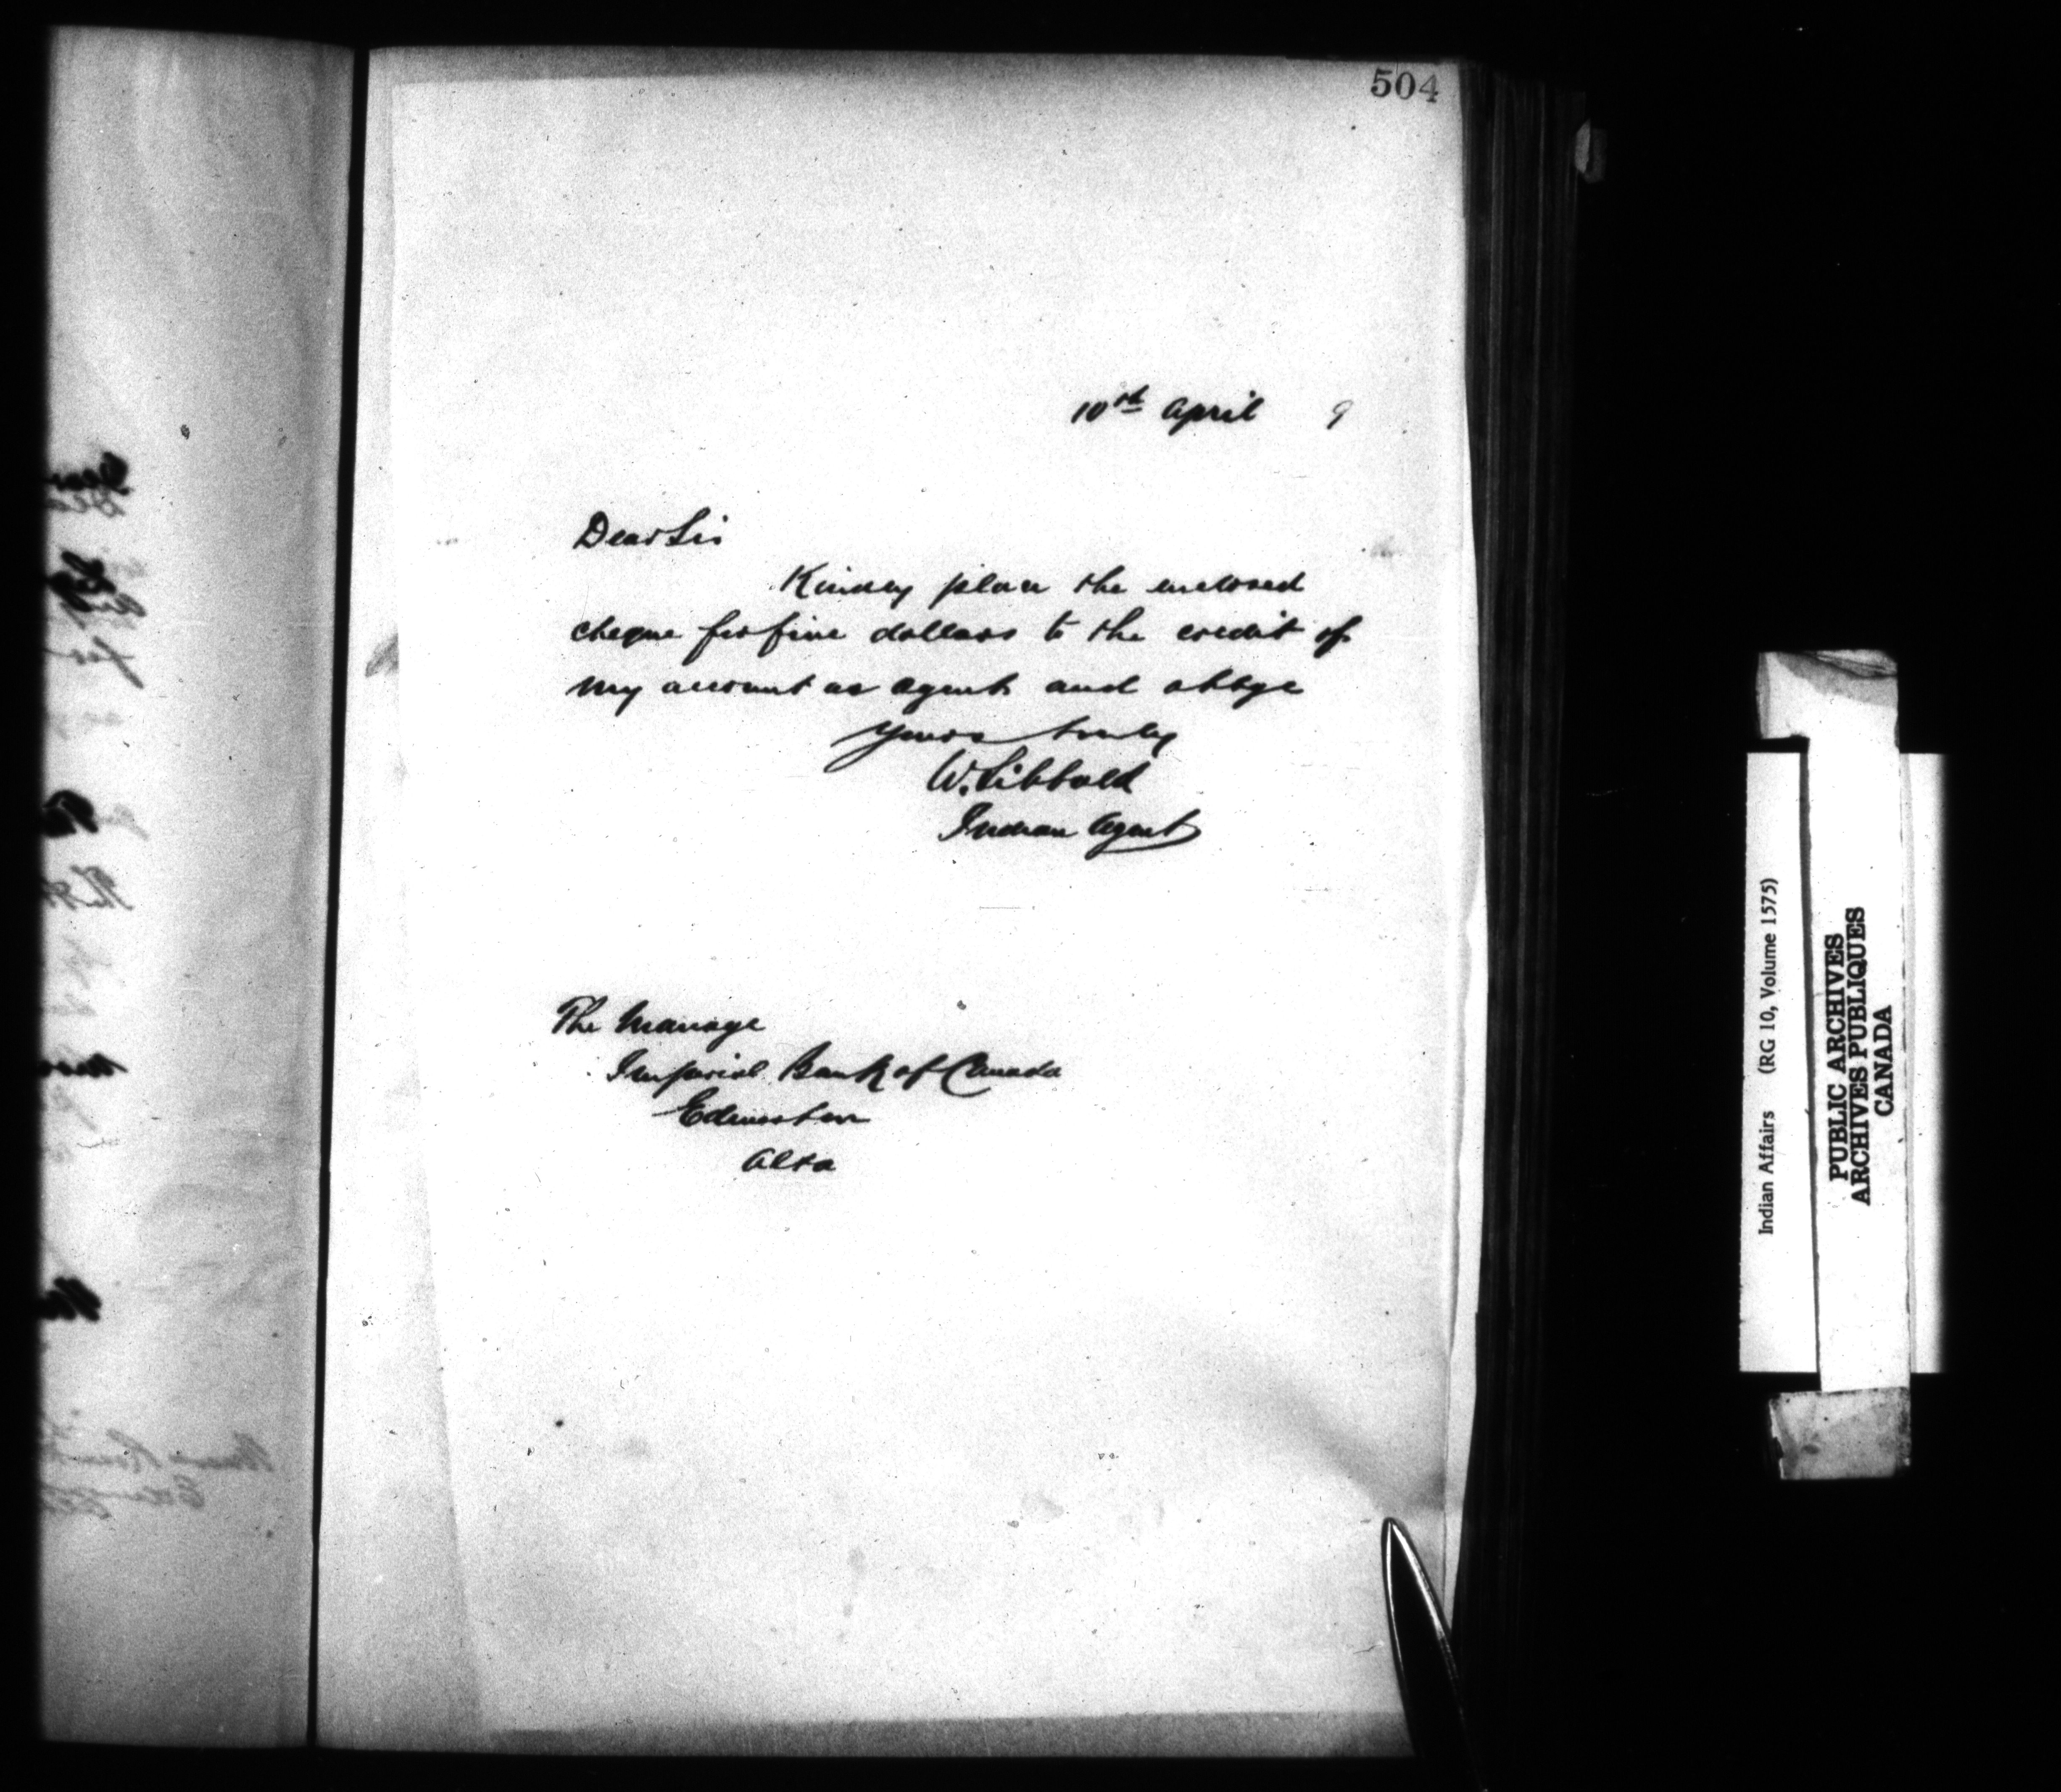 504
10th April 9
Dear Sir
Kindly place the enclosed
cheque for five dollars to the credit of
my account as agent and oblige
Yours truly
W. Sibbald
Indian Agent
The Manager
Imperial Bank of Canada
Edmonton
Alta
Indian Affairs (RG 10, Volume 1575)
PUBLIC ARCHIVES
ARCHIVES PUBLIQUES
CANADA